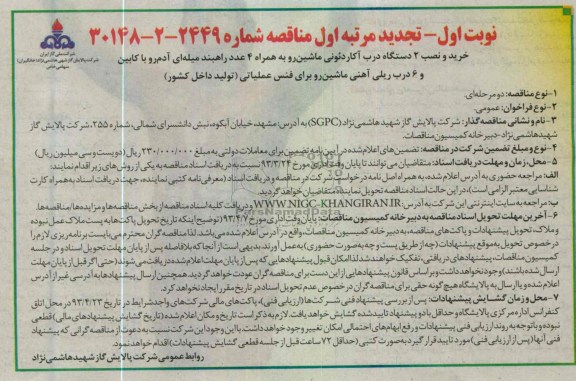 نوبت اول- تجدید مرتبه اول مناقصه شماره ۲۴۴۹-۲-۳۰۱۴۸
خرید و نصب ۲ دستگاه درب آکاردئونی ماشین‌رو به همراه ۴ عدد راهبند میله‌ای آدم‌رو با کابین
و ۶ درب ریلی آهنی ماشین‌رو برای فنس عملیاتی (تولید داخل کشور)
شرکت ملی گاز ایران
شرکت پالایش گاز شهید هاشمی نژاد (خانگیران)
سهامی خاص
۱-نوع مناقصه: دو مرحله‌ای.
۲-نوع فراخوان: عمومی.
۳-نام و نشانی مناقصه گذار: شرکت پالایش گاز شهید هاشمی نژاد (SGPC) به آدرس: مشهد، خیابان آبکوه، نبش دانشسرای شمالی، شماره ۲۵۵، شرکت پالایش گاز
شهید هاشمی نژاد-دبیرخانه کمیسیون مناقصات.
۴-نوع و مبلغ تضمین شرکت در مناقصه: تضمین‌های اعلام شده در آیین نامه تضمین برای معاملات دولتی به مبلغ ۲۳۰/۰۰۰/۰۰۰ ریال (دویست و سی میلیون ریال)
۵-محل، زمان و مهلت دریافت اسناد: متقاضیان می‌توانند تا پایان وقت اداری مورخ ۹۳/۳/۲۴ نسبت به دریافت اسناد مناقصه به یکی از روش‌های زیر اقدام نمایند.
الف: مراجعه حضوری به آدرس اعلام شده، به همراه اصل نامه درخواست شرکت در مناقصه و دریافت اسناد (معرفی نامه کتبی نماینده، جهت دریافت اسناد به همراه کارت
شناسایی معتبر الزامی است)، در این حالت اسناد مناقصه تحویل نماینده متقاضیان خواهد گردید.
ب: مراجعه به سایت اینترنتی این شرکت به آدرس: WWW.NIGC-KHANGIRAN.IR و دریافت کلیه اسناد مناقصه از بخش مناقصه‌ها و مزایده‌ها/مناقصه‌ها.
۶-آخرین مهلت تحویل اسناد مناقصه به دبیرخانه کمیسیون مناقصات: پایان وقت اداری مورخ ۹۳/۴/۷ (توضیح اینکه تاریخ تحویل پاکت‌ها به پست ملاک عمل نبوده
و ملاک، تحویل پیشنهادات و پاکت‌های مناقصه، به دبیرخانه کمیسیون مناقصات، واقع در آدرس اعلام شده می‌باشد. لذا مناقصه گران محترم می‌بایست برنامه ریزی لازم را
در خصوص تحویل به موقع پیشنهادات (چه از طریق پست و چه به صورت حضوری) به عمل آورند. بدیهی است از آنجا که بلافاصله پس از پایان مهلت تحویل اسناد و در جلسه
کمیسیون مناقصات، پیشنهادهای دریافتی، تفکیک خواهند شد لذا امکان قبول پیشنهادهایی که پس از پایان مهلت اعلام شده دریافت می‌شوند (حتی اگر قبل از پایان مهلت
ارسال شده باشند) وجود نخواهد داشت و براساس قانون پیشنهادهایی از این دست برای مناقصه گران عودت خواهد گردید. همچنین ارسال پیشنهادها به آدرسی غیر از آدرس
اعلام شده و یا ارسال به پالایشگاه هیچ گونه حقی برای مناقصه گران در خصوص عدم تحویل اسناد در تاریخ مقرر ایجاد نخواهد کرد.
۷-محل و زمان گشایش پیشنهادات: پس از بررسی پیشنهاد فنی شرکت‌ها (ارزیابی فنی)، پاکت‌های مالی شرکت‌های واجد شرایط در تاریخ ۹۳/۴/۲۳ در محل اتاق
کنفرانس اداره مرکزی پالایشگاه و حداقل با دو پیشنهاد تایید شده گشایش خواهد یافت. لازم به ذکر است تاریخ و مکان اعلام شده (تاریخ گشایش پیشنهادهای مالی) قطعی
نبوده و با توجه به روند ارزیابی فنی پیشنهادات و رفع ابهام‌های احتمالی امکان تغییر وجود خواهد داشت. با این وجود این شرکت نسبت به دعوت از مناقصه گرانی که پیشنهاد
فنی آنها (پس از ارزیابی فنی) مورد تایید قرار گیرد به صورت کتبی (حداقل ۷۲ ساعت قبل از جلسه قطعی گشایش پیشنهادات) اقدام خواهد نمود.
روابط عمومی شرکت پالایش گاز شهید هاشمی نژاد